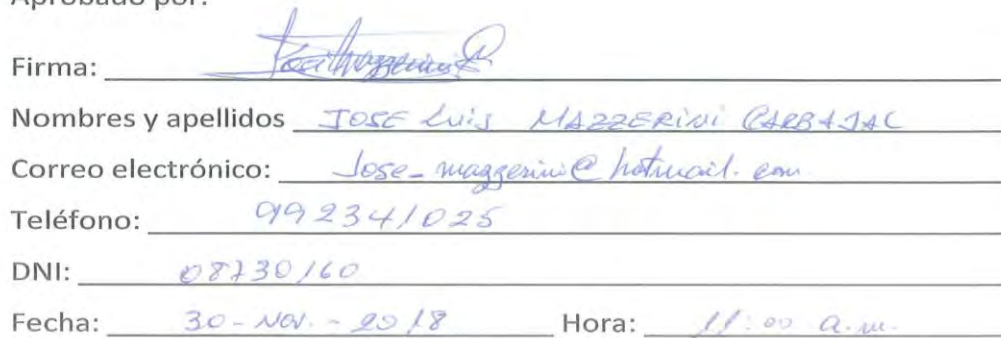 Aprobado por:
Firma:
Nombres y apellidos JOSE Luis MAZZERINI CARBAJAL
Correo electrónico: Jose_mazzerini@hotmail.com
Teléfono: 992341025
DNI: 08730160
Fecha: 30-NOV.-2018 Hora: 11:00 a.m.